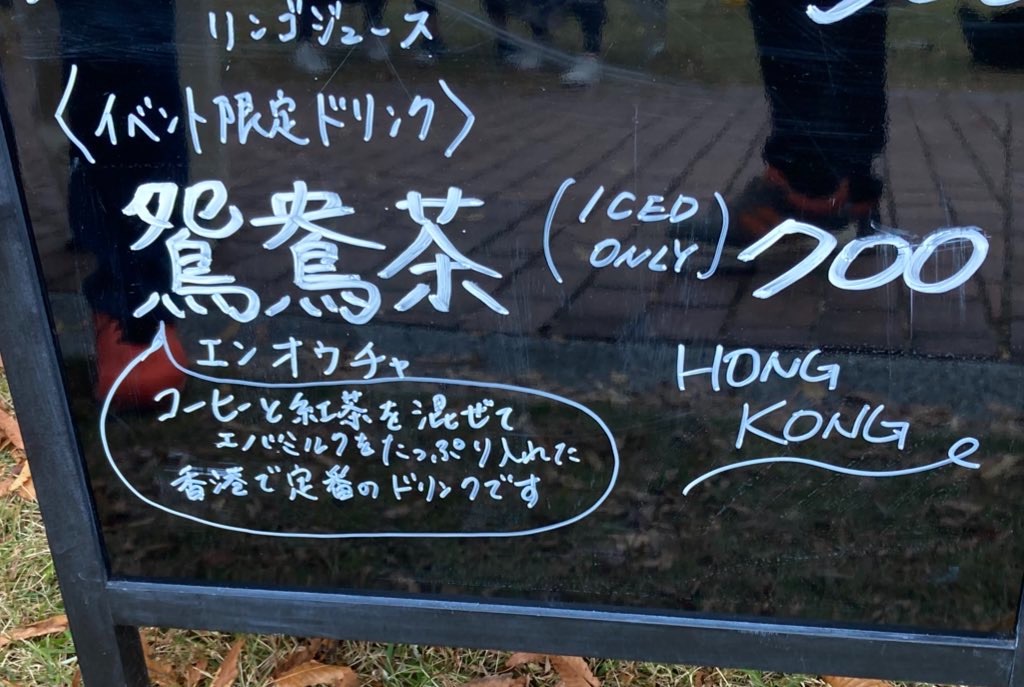 リンゴジュース
〈イベント限定ドリンク〉
鴛鴦茶 (ICED ONLY) 700
エンオウチャ
コーヒーと紅茶を混ぜて
エバミルクをたっぷり入れた
香港で定番のドリンクです
HONG
KONG